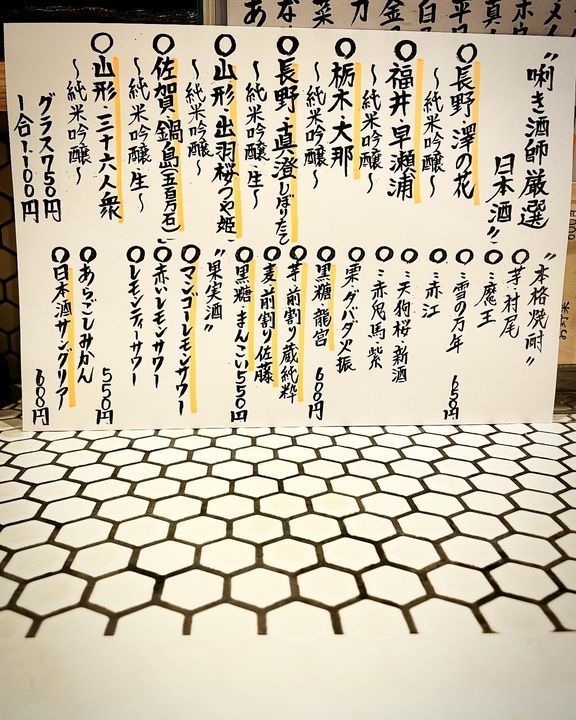 "唎き酒師厳選
日本酒"
○長野 澤の花
～純米吟醸～
○福井 早瀬浦
～純米吟醸～
○栃木 大那
～純米吟醸～
○長野・真澄しぼりたて
～純米吟醸 生～
○山形 出羽桜つや姫
～純米吟醸～
○佐賀 鍋島(五百万石)
～純米吟醸 生～
○山形 三十六人衆
～純米吟醸～
グラス750円
一合1.100円
"本格焼酎"
○芋・村尾
○〃魔王
○〃雪の万年 650円
○〃赤江
○〃天狗桜・新酒
○〃赤兎馬 紫
○栗・ダバダ火振
○黒糖・龍宮 600円
○芋・前割り蔵純粋
○麦・前割り佐藤
○黒糖・まんこい 550円
"果実酒"
○マンゴーレモンサワー
○赤いレモンサワー
○レモンティーサワー
○あらごしみかん 550円
○日本酒サングリアー 600円